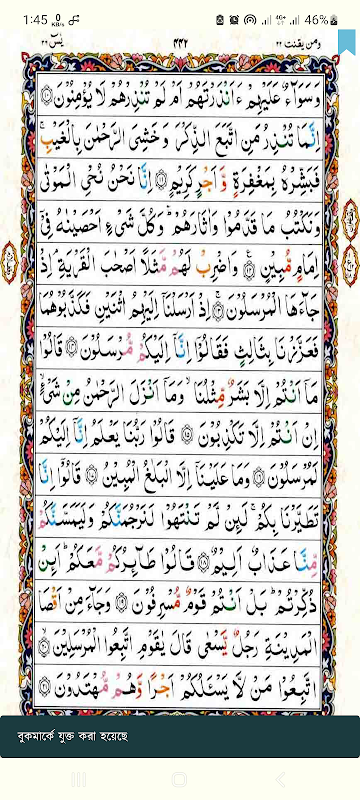 1:45 0 KB/s 4G+ 46%
ومن يقنت ٢٢ ٤٤٢ يٰسٓ ٣٦
وَسَوَآءٌ عَلَيْهِمْ ءَاَنْذَرْتَهُمْ اَمْ لَمْ تُنْذِرْهُمْ لَا يُؤْمِنُوْنَ ⑩
اِنَّمَا تُنْذِرُ مَنِ اتَّبَعَ الذِّكْرَ وَخَشِيَ الرَّحْمٰنَ بِالْغَيْبِ ۚ
فَبَشِّرْهُ بِمَغْفِرَةٍ وَّاَجْرٍ كَرِيْمٍ ⑪ اِنَّا نَحْنُ نُحْيِ الْمَوْتٰى
وَنَكْتُبُ مَا قَدَّمُوْا وَاٰثَارَهُمْ ؕ وَكُلَّ شَيْءٍ اَحْصَيْنٰهُ فِيْٓ
اِمَامٍ مُّبِيْنٍ ⑫ وَاضْرِبْ لَهُمْ مَّثَلًا اَصْحٰبَ الْقَرْيَةِ ۘ اِذْ
جَآءَهَا الْمُرْسَلُوْنَ ⑬ اِذْ اَرْسَلْنَآ اِلَيْهِمُ اثْنَيْنِ فَكَذَّبُوْهُمَا
فَعَزَّزْنَا بِثَالِثٍ فَقَالُوْٓا اِنَّآ اِلَيْكُمْ مُّرْسَلُوْنَ ⑭ قَالُوْا
مَآ اَنْتُمْ اِلَّا بَشَرٌ مِّثْلُنَا ۙ وَمَآ اَنْزَلَ الرَّحْمٰنُ مِنْ شَيْءٍ ۙ
اِنْ اَنْتُمْ اِلَّا تَكْذِبُوْنَ ⑮ قَالُوْا رَبُّنَا يَعْلَمُ اِنَّآ اِلَيْكُمْ
لَمُرْسَلُوْنَ ⑯ وَمَا عَلَيْنَآ اِلَّا الْبَلٰغُ الْمُبِيْنُ ⑰ قَالُوْٓا اِنَّا
تَطَيَّرْنَا بِكُمْ ۚ لَئِنْ لَّمْ تَنْتَهُوْا لَنَرْجُمَنَّكُمْ وَلَيَمَسَّنَّكُمْ
مِّنَّا عَذَابٌ اَلِيْمٌ ⑱ قَالُوْا طَآئِرُكُمْ مَّعَكُمْ ؕ اَئِنْ
ذُكِّرْتُمْ ؕ بَلْ اَنْتُمْ قَوْمٌ مُّسْرِفُوْنَ ⑲ وَجَآءَ مِنْ اَقْصَا
الْمَدِيْنَةِ رَجُلٌ يَّسْعٰى قَالَ يٰقَوْمِ اتَّبِعُوا الْمُرْسَلِيْنَ ⑳
اتَّبِعُوْا مَنْ لَّا يَسْـَٔلُكُمْ اَجْرًا وَّهُمْ مُّهْتَدُوْنَ ㉑
বুকমার্কে যুক্ত করা হয়েছে